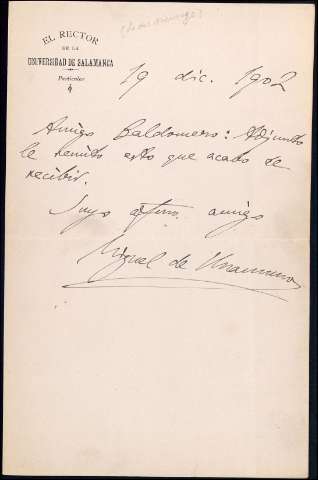 EL RECTOR
DE LA
UNIVERSIDAD DE SALAMANCA
Particular
19 dic. 1902
Amigo Baldomero: Adjunto
le remito esto que acabo de
recibir.
Suyo afmo. amigo
Miguel de Unamuno